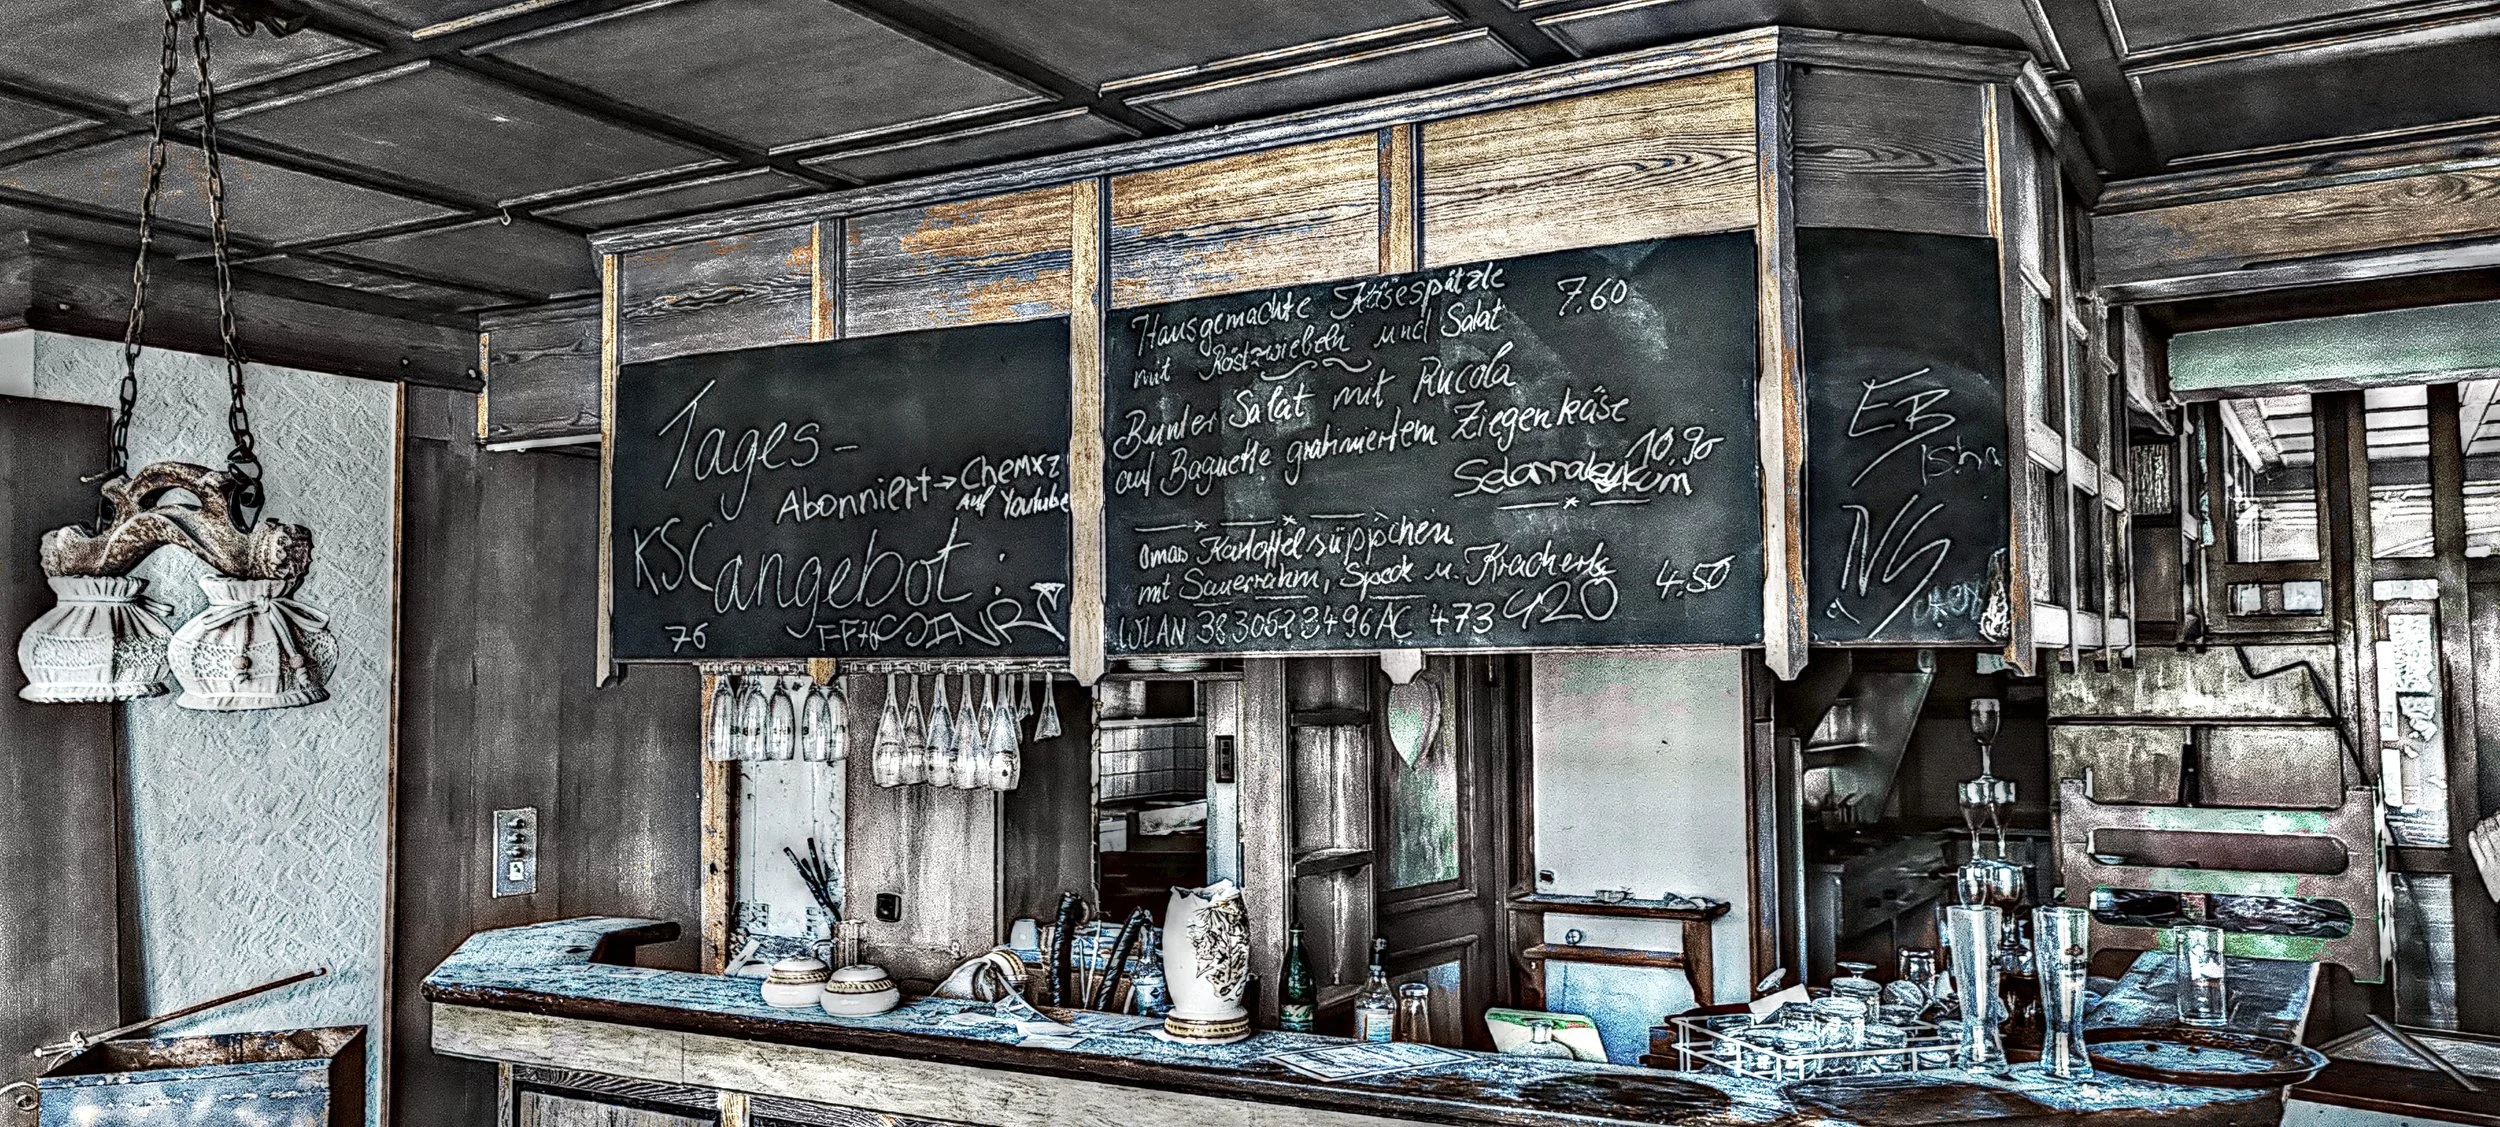 Tages-
Abonniert → Chemxz
auf Youtube
KSC
angebot:
76
FF76
Hausgemachte Käsespätzle 7.60
mit Röstzwiebeln und Salat
Bunter Salat mit Rucola
auf Baguette gratiniertem Ziegenkäse
10,90
Omas Kartoffelsüppchen
mit Sauerrahm, Speck u. Kracherle 4.50
WLAN 38305283496AC 473 420
EB
NG